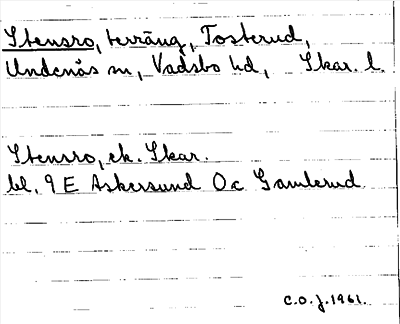 Stensro, terräng, Tosterud,
Undenäs sn, Vadsbo hd, Skar. l.
Stensro, ek. Skar.
bl. 9 E Askersund Oc Gamlerud.
C.O.J. 1961.